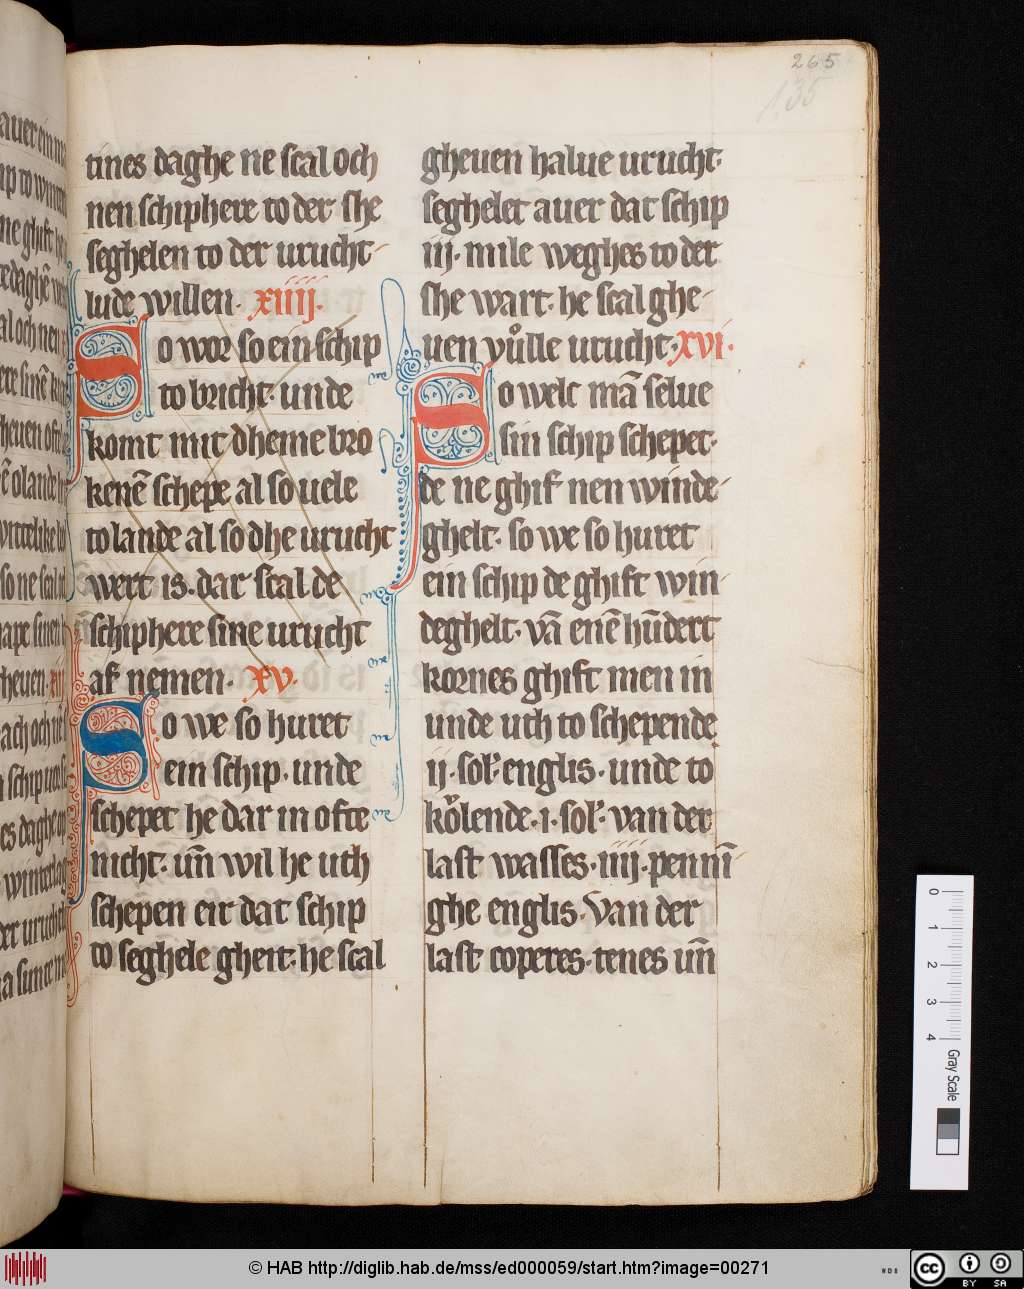 265
135
tines daghe ne scal och
nen schiphere to der she
seghelen to der urucht-
lude willen. xiiij.
So wor so ein schip
to bricht. unde
komt mit dheme bro
kenē schepe al so uele
to lande al so dhe urucht
wert is. dar scal de
schiphere sine urucht
af nemen. xv.
So we so huret
ein schip. unde
schepet he dar in ofte
nicht. un̄ wil he uth
schepen eir dat schip
to seghele gheit. he scal
gheuen halue urucht.
seghelet auer dat schip
iij. mile weghes to der
she wart. he scal ghe-
uen vůlle urucht. xvi.
So welc mā selue
sin schip schepet.
de ne ghif nen winde-
ghelt. so we so huret
ein schip de ghift win-
deghelt. vā enē hūdert
kornes ghift men in
unde uth to schepende
ij. sol. englis. unde to
kolende. i. sol. van der
last wasses. iiij. penni-
ghe englis. Van der
last coperes. tenes un̄
Gray Scale
0
1
2
3
4
© HAB http://diglib.hab.de/mss/ed000059/start.htm?image=00271
cc BY SA